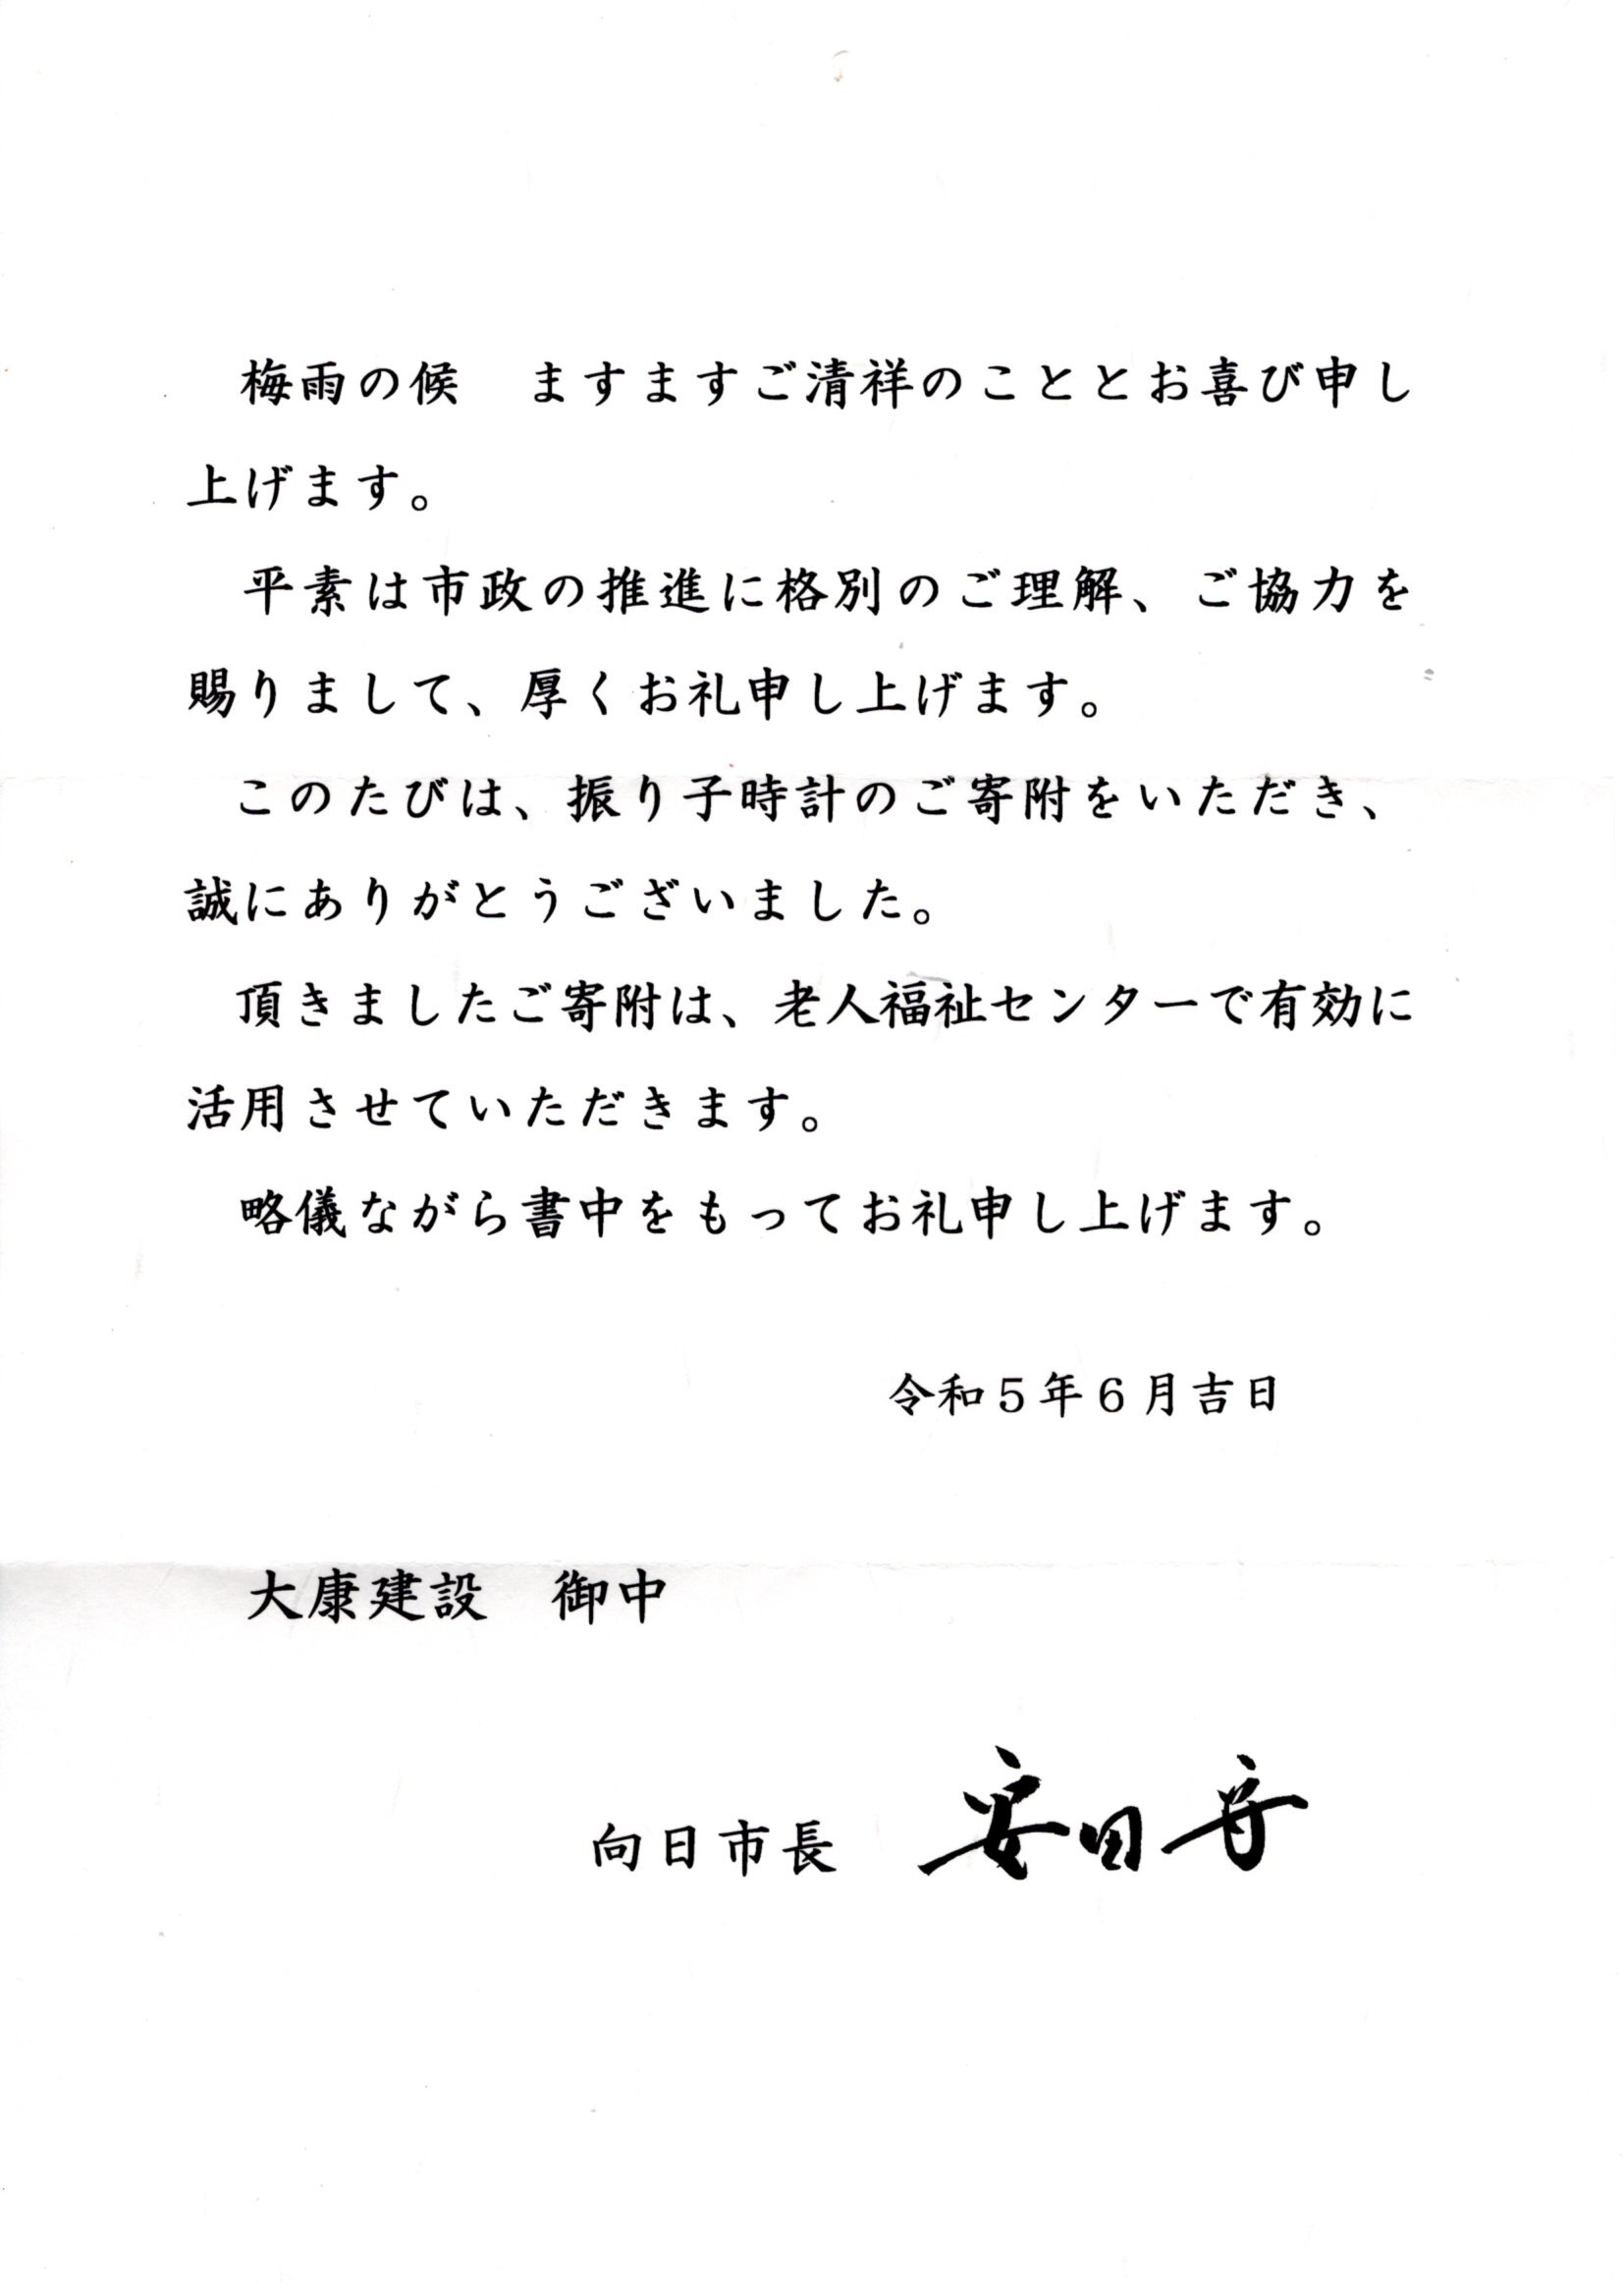 梅雨の候　ますますご清祥のこととお喜び申し
上げます。
平素は市政の推進に格別のご理解、ご協力を
賜りまして、厚くお礼申し上げます。
このたびは、振り子時計のご寄附をいただき、
誠にありがとうございました。
頂きましたご寄附は、老人福祉センターで有効に
活用させていただきます。
略儀ながら書中をもってお礼申し上げます。
令和５年６月吉日
大康建設　御中
向日市長　安田守